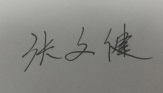 张文健